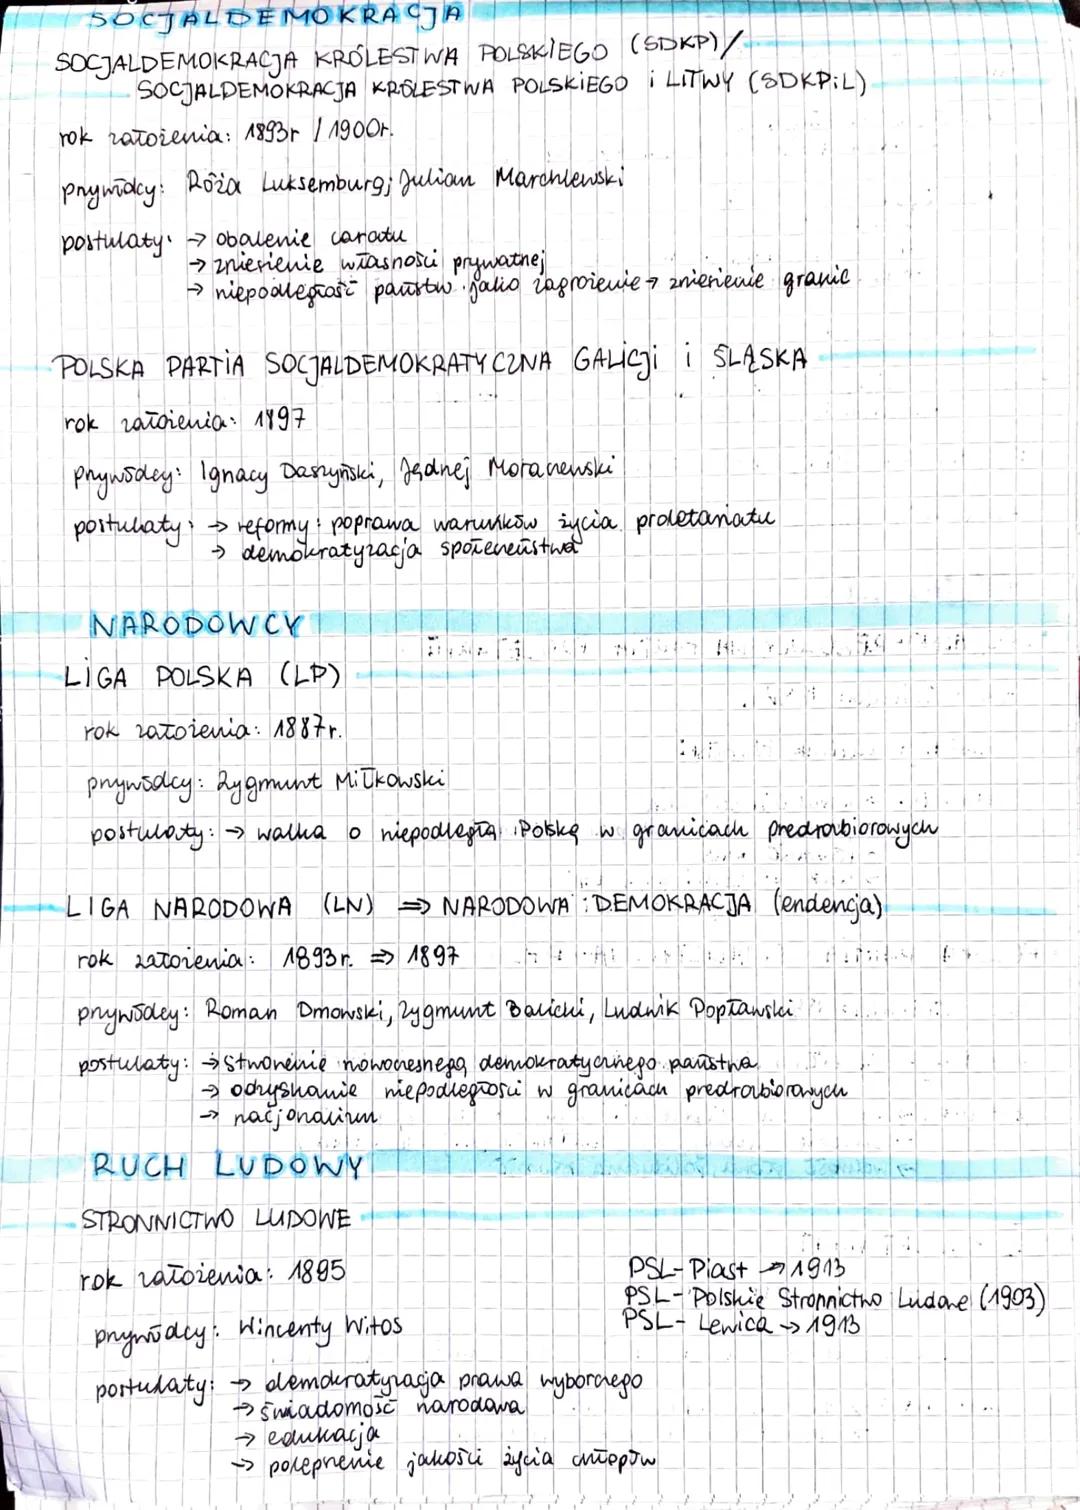 SOCJALDEMOKRACJA
SOCJALDEMOKRACJA KRÓLESTWA POLSKIEGO (SDKP)/
SOCJALDEMOKRACJA KRÓLESTWA POLSKIEGO i LITWY (SDKPiL)
rok założenia: 1893r / 1900r.
przywódcy: Róża Luksemburg; Julian Marchlewski
postulaty: → obalenie caratu
→ zniesienie własności prywatnej
→ niepodległość państw jako zagrożenie → zniesienie granic
POLSKA PARTIA SOCJALDEMOKRATYCZNA GALICJI i ŚLĄSKA
rok założenia: 1897
przywódcy: Ignacy Daszyński, Jędrzej Moraczewski
postulaty: → reformy: poprawa warunków życia proletariatu
→ demokratyzacja społeczeństwa
NARODOWCY
LIGA POLSKA (LP)
rok założenia: 1887r.
przywódcy: Zygmunt Miłkowski
postulaty: → walka o niepodległą Polskę w granicach przedrozbiorowych
LIGA NARODOWA (LN) ⇒ NARODOWA DEMOKRACJA (endencja)
rok założenia: 1893r. ⇒ 1897
przywódcy: Roman Dmowski, Zygmunt Balicki, Ludwik Popławski
postulaty: → stworzenie nowoczesnego demokratycznego państwa
→ odzyskanie niepodległości w granicach przedrozbiorowych
→ nacjonalizm
RUCH LUDOWY
STRONNICTWO LUDOWE
rok założenia: 1895
PSL-Piast → 1913
PSL-Polskie Stronnictwo Ludowe (1903)
PSL-Lewica → 1913
przywódcy: Wincenty Witos
postulaty: → demokratyzacja prawa wyborczego
→ świadomość narodowa
→ edukacja
→ polepszenie jakości życia chłopów